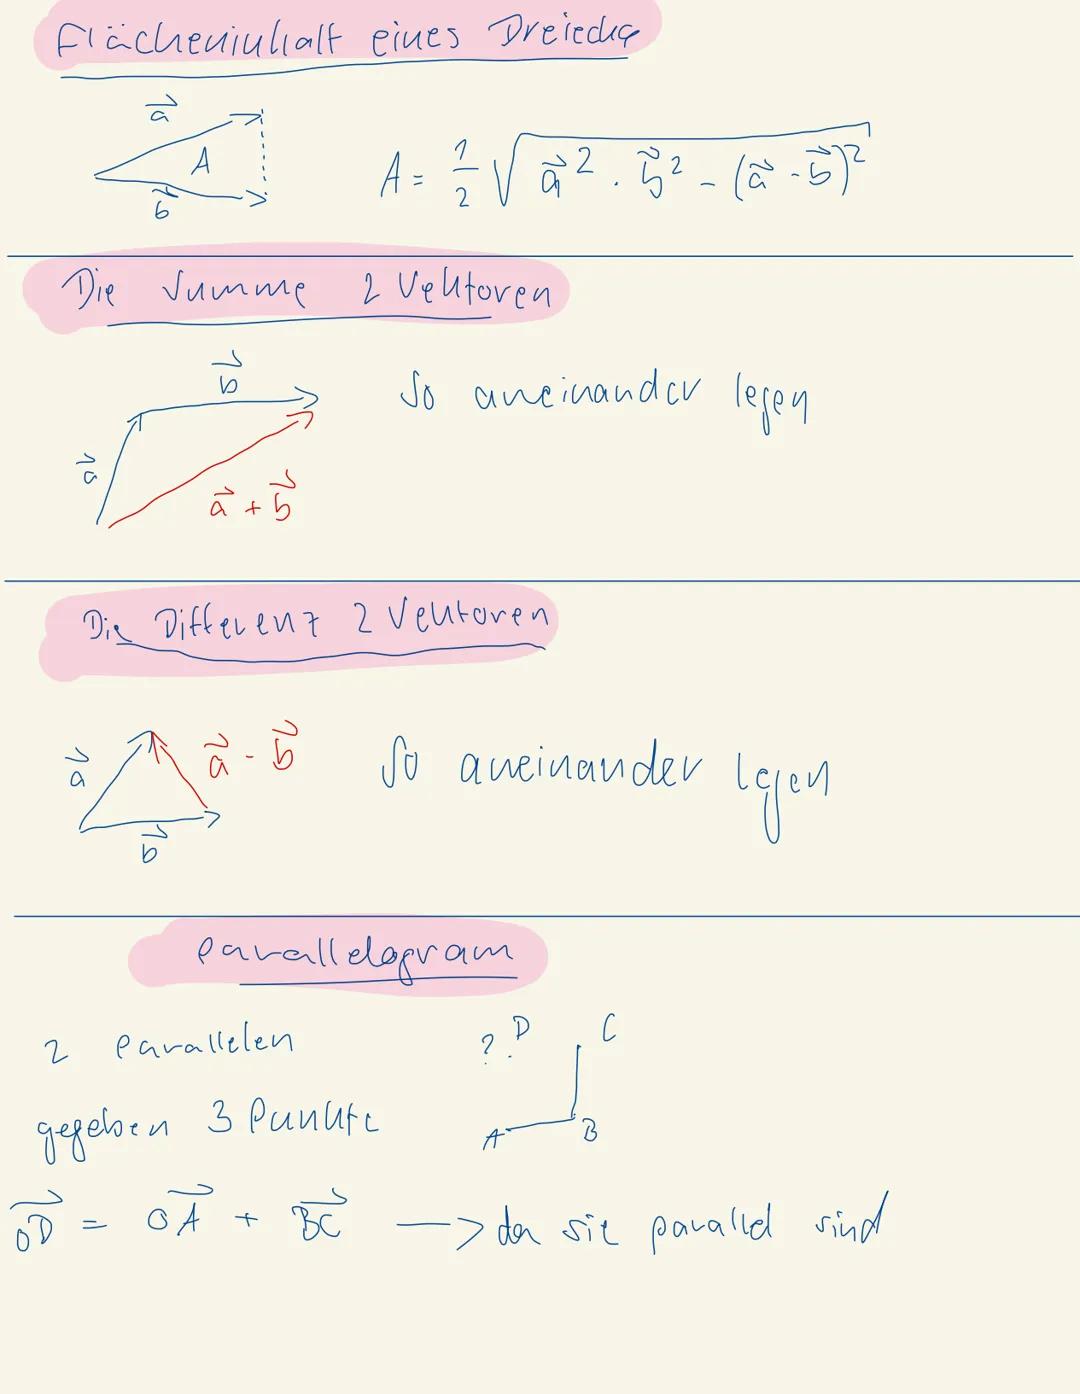 Flächeninhalt eines Dreiecks
a⃗
A
b⃗
A = 1/2 √(a⃗² · b⃗² - (a⃗ · b⃗)²)
Die Summe 2 Vektoren
b⃗
a⃗
a⃗ + b⃗
So aneinander legen
Die Differenz 2 Vektoren
a⃗
a⃗ - b⃗
b⃗
So aneinander legen
Parallelogram
2 Parallelen
? D C
gegeben 3 Punkte
A B
OD⃗ = OA⃗ + BC⃗ → da sie parallel sind